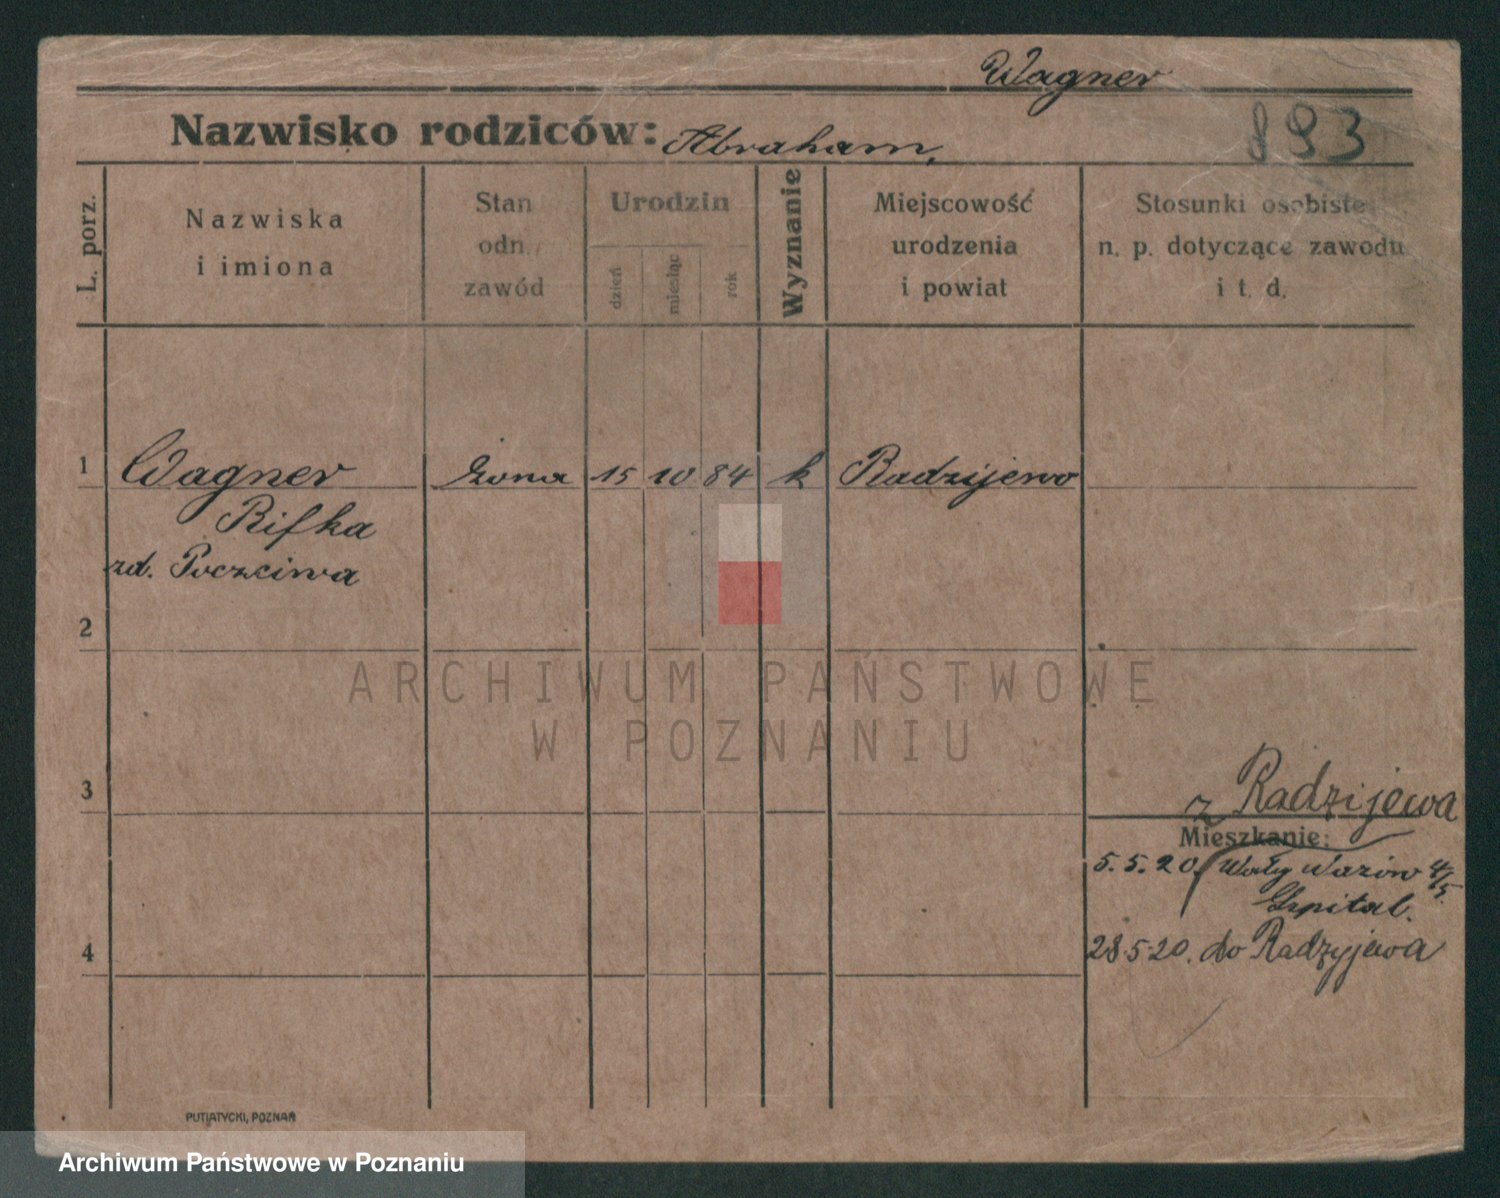 Wagner
Nazwisko rodziców: Abraham,
893
L. porz.
Nazwiska
i imiona
Stan
odn.
zawód
Urodzin
dzień
miesiąc
rok
Wyznanie
Miejscowość
urodzenia
i powiat
Stosunki osobiste
n. p. dotyczące zawodu
i t. d.
1 Wagner żona 15 10 84 k Radzijewo
Rifka
zd. Poczciwa
2
ARCHIWUM PAŃSTWOWE
W POZNANIU
3
z Radzijewa
Mieszkanie:
5.5.20. Wały Wazów 4/5.
Szpital.
4
28.5.20. do Radzyjewa
PUTIATYCKI, POZNAŃ
Archiwum Państwowe w Poznaniu